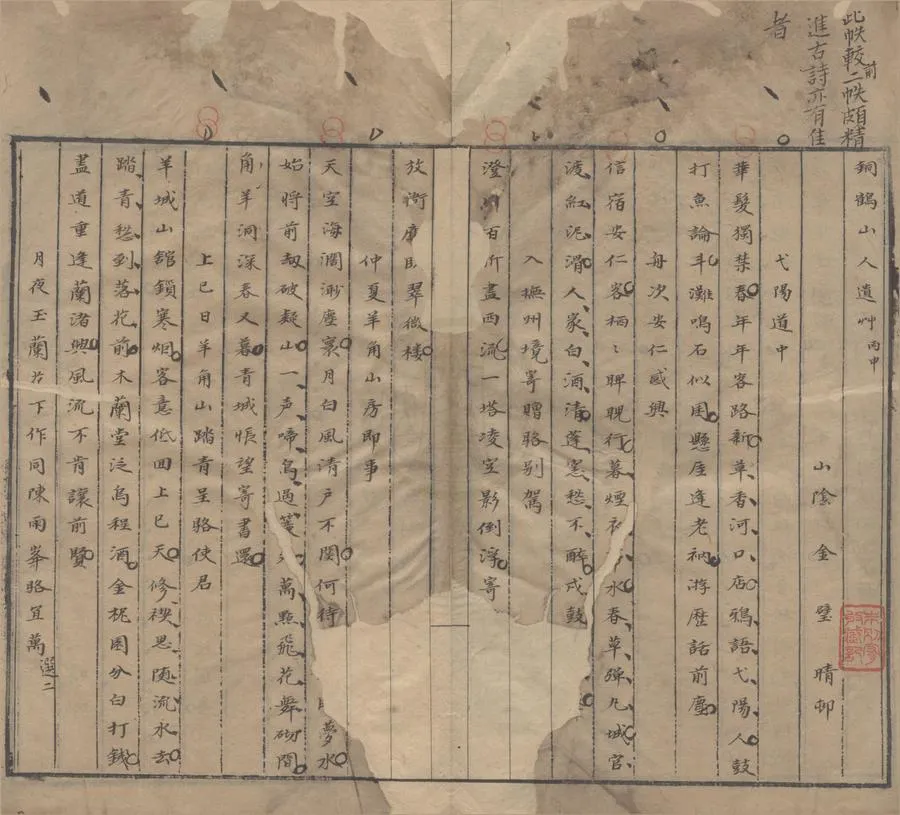 此帙較前二帙頗精
進古詩亦有佳
者
銅鶴山人遺艸丙申
山陰金璧晴邨
弋陽道中
華髮獨禁春年年客路新草香河口店鴉語弋陽人鼓
打魚論斗灘鳴石似囷懸厓逢老衲游歷話前塵
舟次安仁感興
信宿安仁客栖〻睥睨行暮煙水春草彈丸城官
渡紅泥滑人家白酒清蓬窻愁不醉戍鼓
入撫州境寄贈駱别駕
澄百折盡西流一塔凌空影倒浮寄
放衙翠微樓
仲夏羊角山房即事
天空海濶渺塵寰月白風清戶不関何待夢水
始將前刼破疑山一声啼鳥過萬點飛花舞砌間
角羊洞深春又暮青城悵望寄書還
上巳日羊角山踏青呈駱使君
羊城山館鎖寒烟客意低回上巳天修禊思随流水去
踏青愁到落花前木蘭堂泛烏程酒金椀圍分白打錢
盡道重逢蘭渚興風流不肯讓前賢
月夜玉蘭花下作同陳雨峯駱宜萬
選二